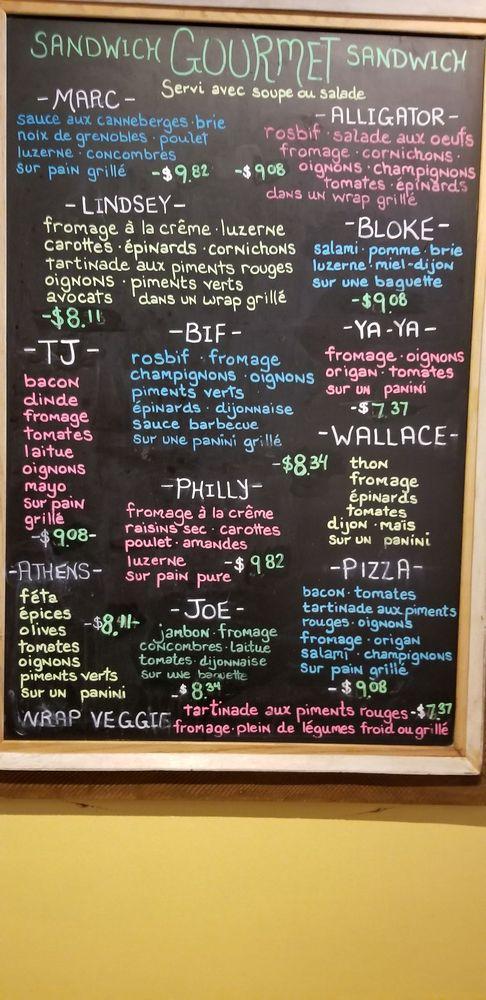 SANDWICH GOURMET SANDWICH
Servi avec soupe ou salade
-MARC-
sauce aux canneberges·brie
noix de grenobles·poulet
luzerne·concombres
sur pain grillé -$9.82
-ALLIGATOR-
rosbif·salade aux oeufs
fromage·cornichons·
-$9.08 oignons·champignons
tomates·épinards
dans un wrap grillé
-LINDSEY-
fromage à la crême·luzerne
carottes·épinards·cornichons
tartinade aux piments rouges
oignons·piments verts
avocats dans un wrap grillé
-$8.11
-BLOKE-
salami·pomme·brie
luzerne·miel-dijon
sur une baguette
-$9.08
-TJ-
bacon
dinde
fromage
tomates
laitue
oignons
mayo
sur pain
grillé
-$9.08-
-BIF-
rosbif·fromage
champignons·oignons
piments verts
épinards·dijonnaise
sauce barbecue
sur une panini grillé
-$8.34
-YA-YA-
fromage·oignons
origan·tomates
sur un panini
-$7.37
-WALLACE-
thon
fromage
épinards
tomates
dijon·mais
sur un panini
-PHILLY-
fromage à la crême
raisins sec·carottes
poulet·amandes
luzerne -$9.82
sur pain pure
-ATHENS-
féta
épices
olives -$8.11-
tomates
oignons
piments verts
sur un panini
-JOE-
jambon·fromage
concombres·laitue
tomates·dijonnaise
sur une baguette
-$8.34
-PIZZA-
bacon·tomates
tartinade aux piments
rouges·oignons
fromage·origan
salami·champignons
sur pain grillé
-$9.08
WRAP VEGGIE tartinade aux piments rouges-$7.37
fromage·plein de légumes froid ou grillé